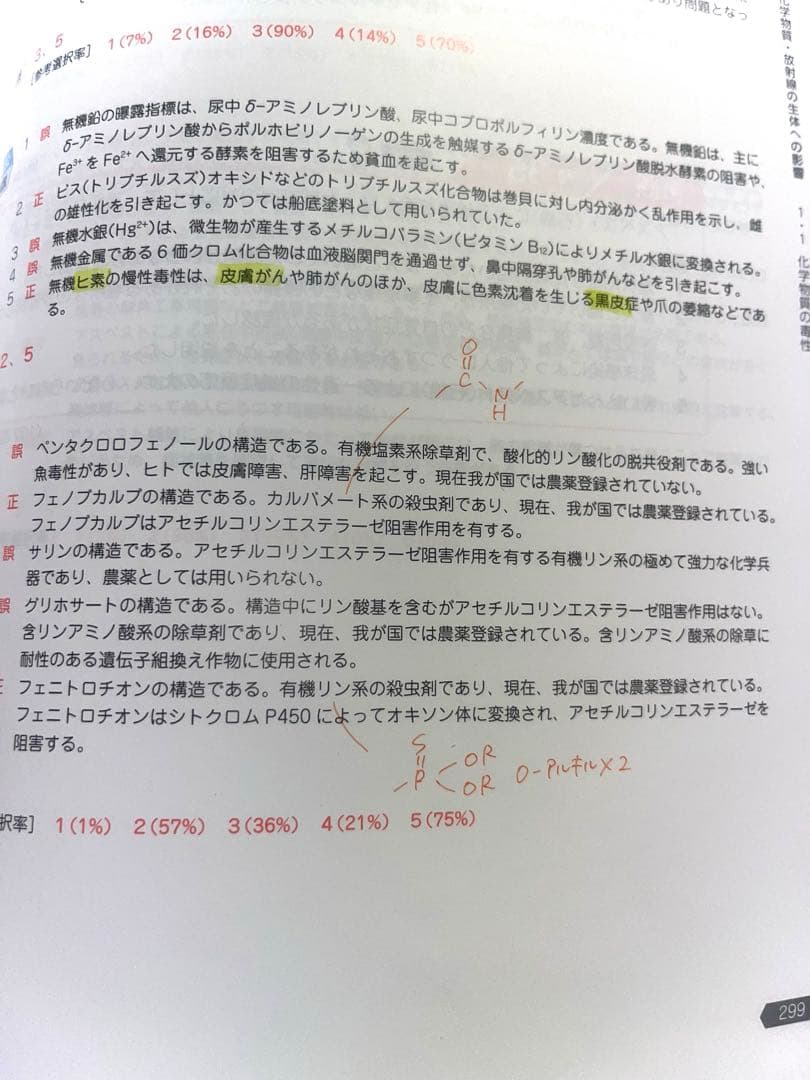 り問題となっ
3、5
[参考選択率] 1(7%) 2(16%) 3(90%) 4(14%) 5(70%)
1 誤 無機鉛の曝露指標は、尿中δ-アミノレブリン酸、尿中コプロポルフィリン濃度である。無機鉛は、主に
δ-アミノレブリン酸からポルホビリノーゲンの生成を触媒するδ-アミノレブリン酸脱水酵素の阻害や、
Fe³⁺をFe²⁺へ還元する酵素を阻害するため貧血を起こす。
2 正 ビス(トリブチルスズ)オキシドなどのトリブチルスズ化合物は巻貝に対し内分泌かく乱作用を示し、雌
の雄性化を引き起こす。かつては船底塗料として用いられていた。
3 誤 無機水銀(Hg²⁺)は、微生物が産生するメチルコバラミン(ビタミンB₁₂)によりメチル水銀に変換される。
4 誤 無機金属である6価クロム化合物は血液脳関門を通過せず、鼻中隔穿孔や肺がんなどを引き起こす。
5 正 無機ヒ素の慢性毒性は、皮膚がんや肺がんのほか、皮膚に色素沈着を生じる黒皮症や爪の萎縮などであ
る。
2、5
O
C
N
H
誤 ペンタクロロフェノールの構造である。有機塩素系除草剤で、酸化的リン酸化の脱共役剤である。強い
魚毒性があり、ヒトでは皮膚障害、肝障害を起こす。現在我が国では農薬登録されていない。
正 フェノブカルブの構造である。カルバメート系の殺虫剤であり、現在、我が国では農薬登録されている。
フェノブカルブはアセチルコリンエステラーゼ阻害作用を有する。
誤 サリンの構造である。アセチルコリンエステラーゼ阻害作用を有する有機リン系の極めて強力な化学兵
器であり、農薬としては用いられない。
誤 グリホサートの構造である。構造中にリン酸基を含むがアセチルコリンエステラーゼ阻害作用はない。
含リンアミノ酸系の除草剤であり、現在、我が国では農薬登録されている。含リンアミノ酸系の除草に
耐性のある遺伝子組換え作物に使用される。
フェニトロチオンの構造である。有機リン系の殺虫剤であり、現在、我が国では農薬登録されている。
フェニトロチオンはシトクロムP450によってオキソン体に変換され、アセチルコリンエステラーゼを
阻害する。
S
P
OR
OR
O-アルキル×2
択率] 1(1%) 2(57%) 3(36%) 4(21%) 5(75%)
化学物質・放射線の生体への影響 1・1 化学物質の毒性
299